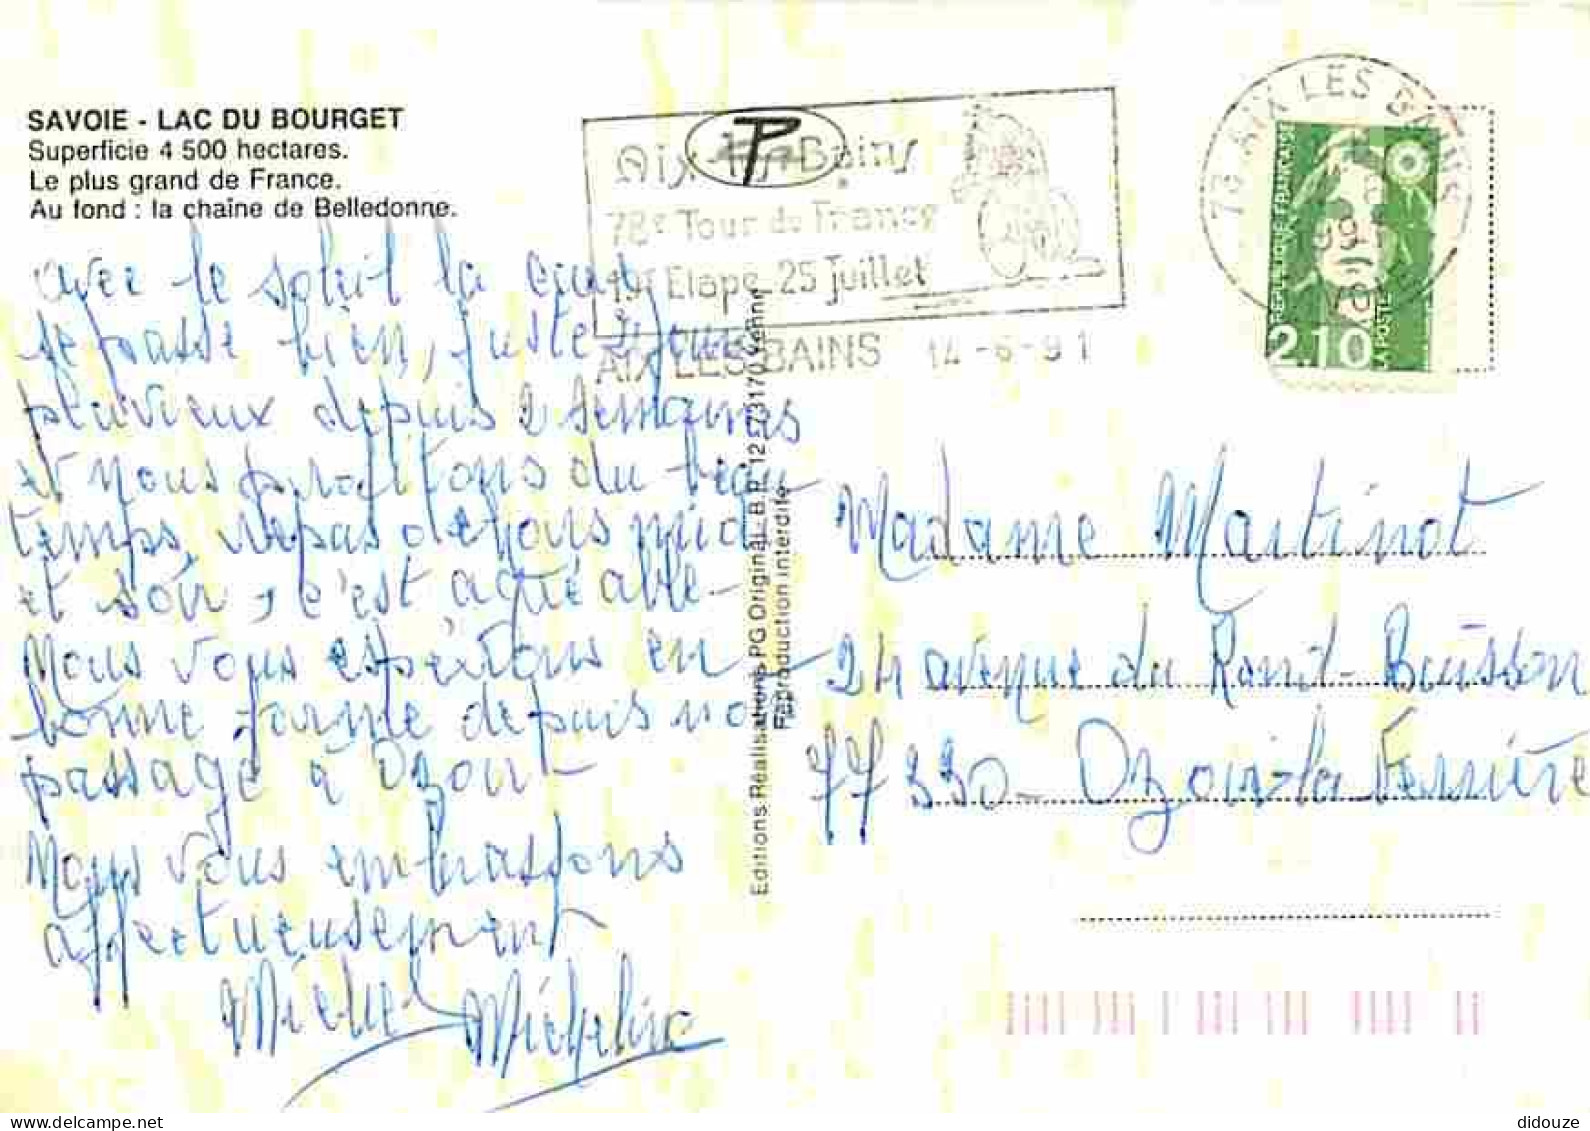 SAVOIE - LAC DU BOURGET
Superficie 4 500 hectares.
Le plus grand de France.
Au fond : la chaîne de Belledonne.
Avec le soleil la cure
se passe bien, juste 2 jours
pluvieux depuis 2 semaines
et nous profitons du beau
temps, repas dehors midi
et soir, c'est agréable -
Nous vous espérons en
bonne forme depuis no
passage à Ozoir
Nous vous embrassons
affectueusement
Michel Micheline
Editions Réalisations PG Original. B.P. 12 - 73170 Yenne
Reproduction interdite
Aix Bains
78e Tour de France
19e Etape 25 Juillet
AIX LES BAINS 14-6-91
73 AIX LES BAINS
REPUBLIQUE FRANCAISE
2.10
LA POSTE
Madame Martinot
24 avenue du Rond-Buisson
77330 - Ozoir-la-Ferrière
delcampe.net
didouze